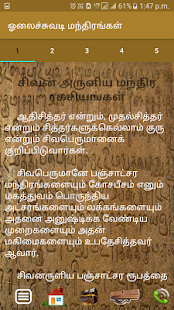 83% 1:47 p.m.
ஓலைச்சுவடி மந்திரங்கள்
1 2 3 4 5
சிவன் அருளிய மந்திர
ரகசியங்கள்
ஆதிசித்தர் என்றும், முதல்சித்தர்
என்றும் சித்தர்களுக்கெல்லாம் குரு
என்றும் சிவபெருமானைக்
குறிப்பிடுவார்கள்.
சிவபெருமானே பஞ்சாட்சர
மந்திரங்களையும் கோசபீசம் எனும்
மகத்துவம் பொருந்திய
அட்சரங்களையும் லக்கங்களையும்
அதனை அனுஷ்டிக்க வேண்டிய
முறைகளையும் அதன்
மகிமைகளையும் உபதேசித்தவர்
ஆவார்.
சிவனருளிய பஞ்சாட்சர ரூபத்தை